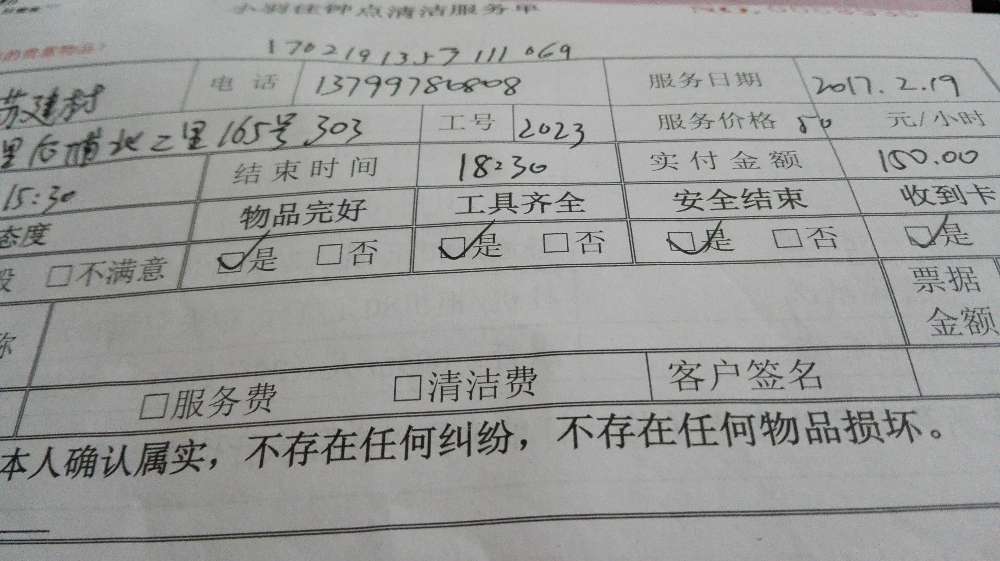 钟点清洁服务单
的贵重物品?
170219135711069
苏建材 电话 13799780808 服务日期 2017.2.19
里后埔北二里165号303 工号 2023 服务价格 50 元/小时
15:30 结束时间 18:30 实付金额 150.00
态度 物品完好 工具齐全 安全结束 收到卡
□不满意 ☑是 □否 ☑是 □否 ☑是 □否 ☑是
票据
称 金额
□服务费 □清洁费 客户签名
本人确认属实，不存在任何纠纷，不存在任何物品损坏。